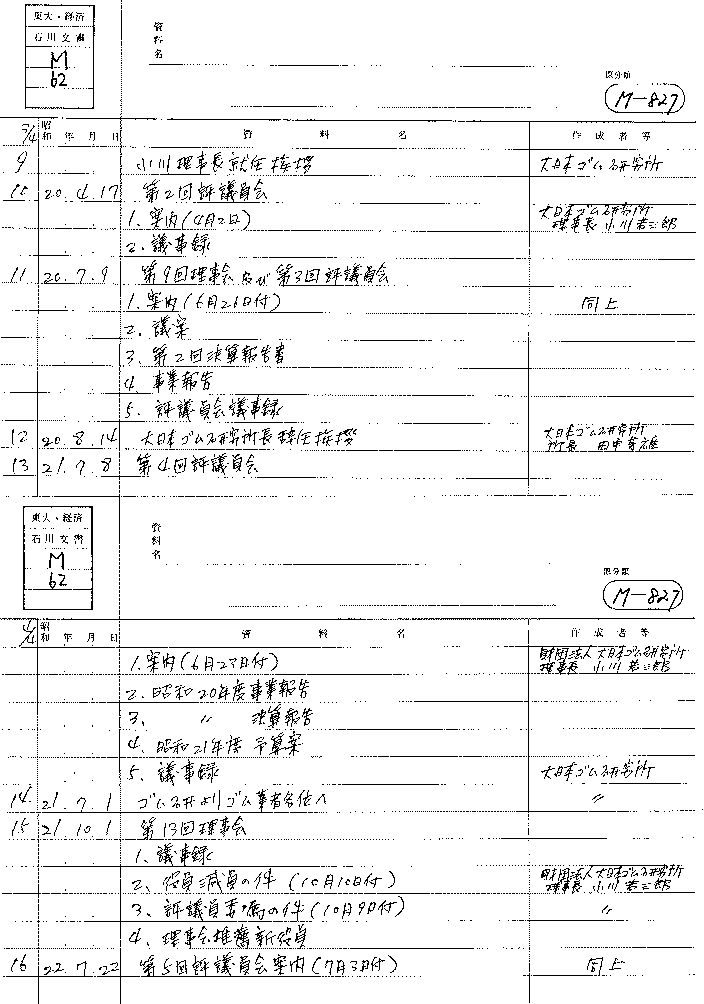 東大・経済
石川文書
M
62
資料名
原分類
M-827
3/4 昭和 年 月 日 資料名 作成者等
9 小川理事長就任挨拶 大日本ゴム研究所
10 20.4.17 第2回評議員会
1. 案内(4月2日) 大日本ゴム研究所 理事長 小川 郎
2. 議事録
11 20.7.9 第9回理事会及び第3回評議員会
1. 案内(6月26日付) 同上
2. 議案
3. 第2回決算報告書
4. 事業報告
5. 評議員会議事録
12 20.8.14 大日本ゴム研究所長辞任挨拶 大日本ゴム研究所 所長 田中 雄
13 21.7.8 第4回評議員会
東大・経済
石川文書
M
62
資料名
原分類
M-827
4/4 昭和 年 月 日 資料名 作成者等
1. 案内(6月27日付) 財団法人大日本ゴム研究所 理事長 小川 郎
2. 昭和20年度事業報告
3. 〃 決算報告
4. 昭和21年度 予算案
5. 議事録 大日本ゴム研究所
14 21.7.1 ゴム研よりゴム業者各位へ 〃
15 21.10.1 第13回理事会
1. 議事録
2. 役員減員の件(10月10日付) 財団法人大日本ゴム研究所 理事長 小川 郎
3. 評議員委嘱の件(10月9日付) 〃
4. 理事会推薦新役員
16 22.7.22 第5回評議員会案内(7月3日付) 同上